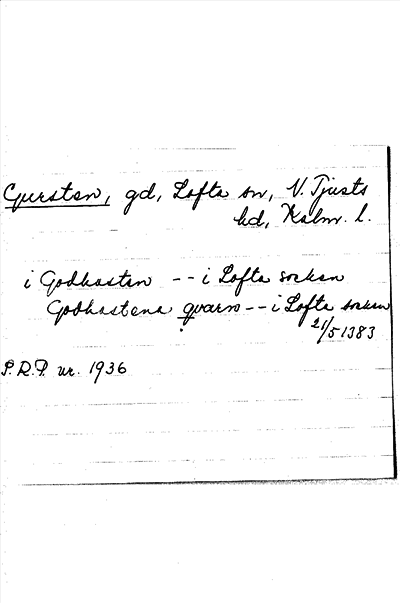 Gursten, gd, Lofta sn, N. Tjusts
hd, Kalm. l.
i Godhastin -- i Lofta sokan
Godhastena qvarn -- i Lofta sokan
21/5 1383
S.R.P. nr. 1936